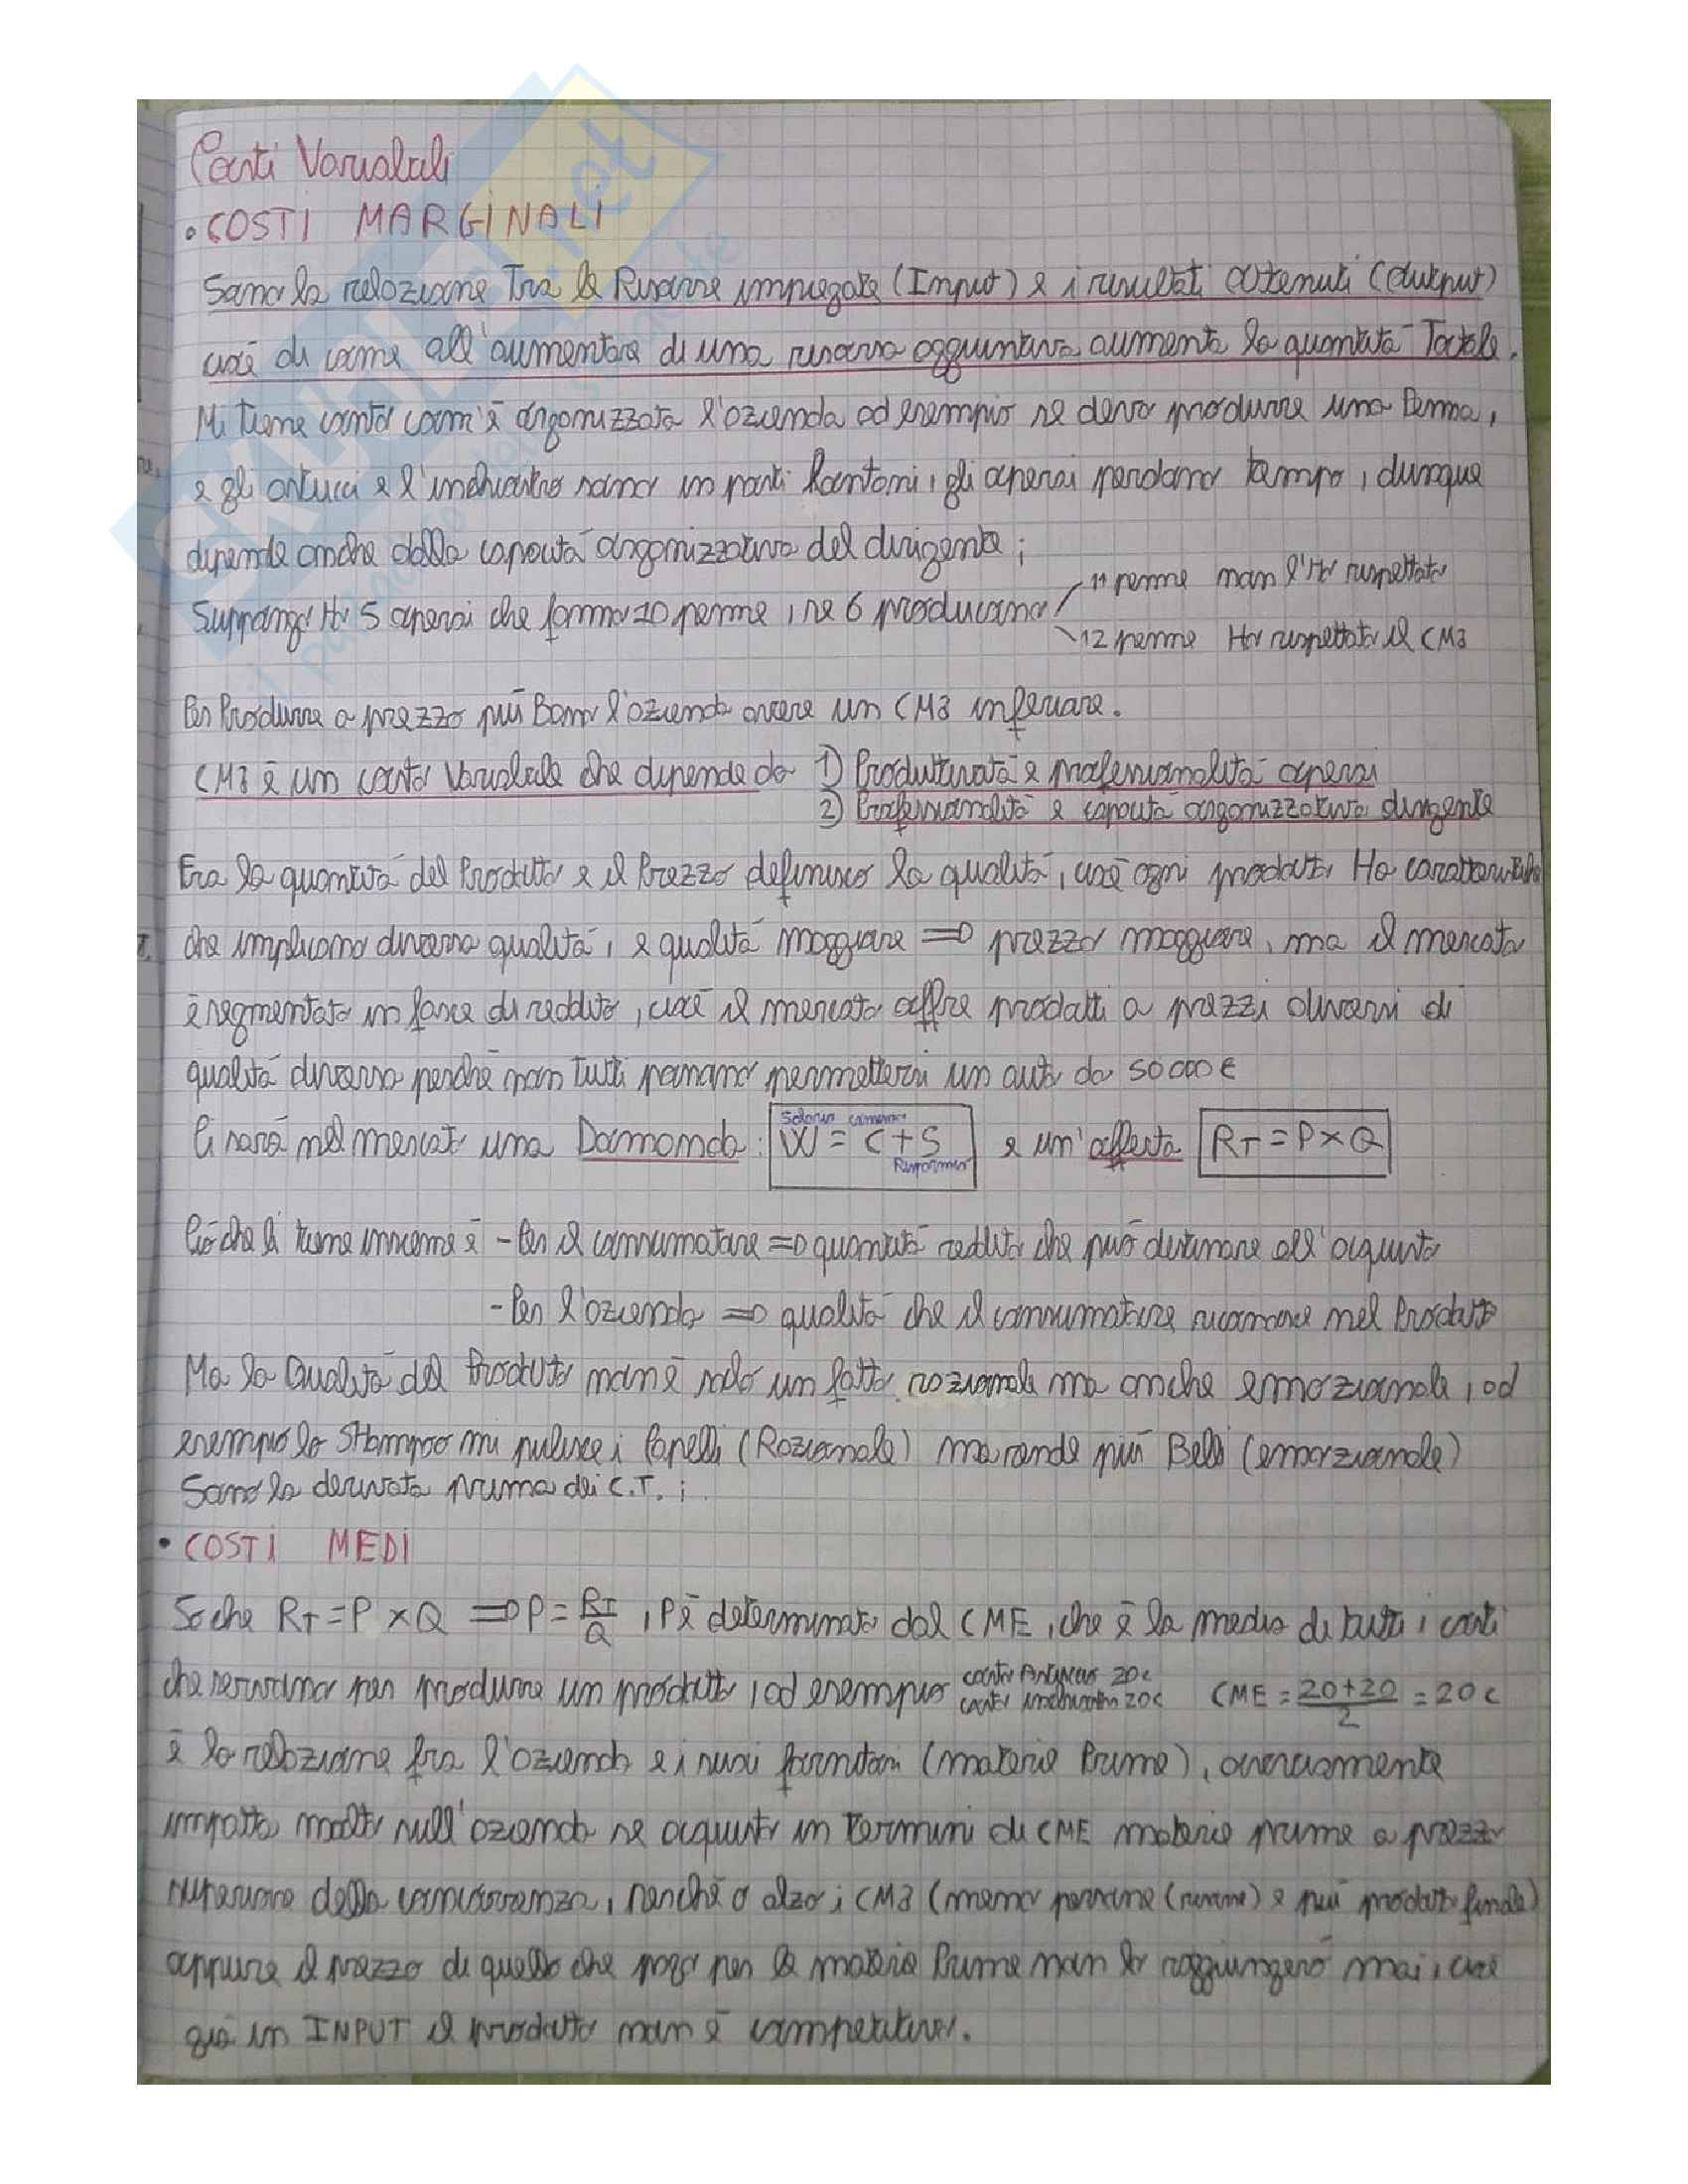 Costi Variabili
• COSTI MARGINALI
Sono la relazione Tra le Risorse impiegate (Input) e i risultati ottenuti (output)
cioè di come all'aumentare di una risorsa aggiuntiva aumenta la quantità Totale.
Mi tiene conto com'è organizzata l'azienda ad esempio se devo produrre una Penna,
e gli astucci e l'inchiostro sono in posti lontani, gli operai perdono tempo, dunque
dipende anche dalla capacità organizzativa del dirigente;
Suppongo Ho 5 operai che fanno 10 penne, se 6 producono
11 penne non l'Ho rispettato
12 penne Ho rispettato il CMG
Per Produrre a prezzo più Basso l'azienda avere un CMG inferiore.
CMG è un costo Variabile che dipende da 1) Produttività e professionalità operai
2) Professionalità e capacità organizzativa dirigente
Fra la quantità del Prodotto e il Prezzo definisco la qualità, cioè ogni prodotto Ha caratteristiche
che implicano diversa qualità, e qualità maggiore => prezzo maggiore, ma il mercato
è segmentato in fasce di reddito, cioè il mercato offre prodotti a prezzi diversi di
qualità diversa perché non tutti possono permettersi un auto da 50000€
Ci sarà nel mercato una Domanda: W = C + S e un'offerta RT = P × Q
Salario consumo
Risparmio
Ciò che li tiene insieme è - Per il consumatore => quantità reddito che può destinare all'acquisto
- Per l'azienda => qualità che il consumatore riconosce nel Prodotto
Ma la Qualità del Prodotto non è solo un fatto razionale ma anche emozionale, ad
esempio lo SHampoo mi pulisce i Capelli (Razionale) ma rende più Belli (emozionale)
Sono la derivata prima dei C.T. ;
• COSTI MEDI
So che RT = P × Q => P = RT/Q , P è determinato dal CME, che è la media di tutti i costi
che servono per produrre un prodotto, ad esempio costo Astuccio 20c costo inchiostro 20c CME = 20+20/2 = 20c
è la relazione fra l'azienda e i suoi fornitori (materie Prime), ovviamente
impatta molto sull'azienda se acquisto in termini di CME materie prime a prezzo
superiore della concorrenza, perché o alzo i CMG (meno persone (risorse) e più prodotto finale)
oppure il prezzo di quello che pago per le materie Prime non lo raggiungerò mai, cioè
già in INPUT il prodotto non è competitivo.